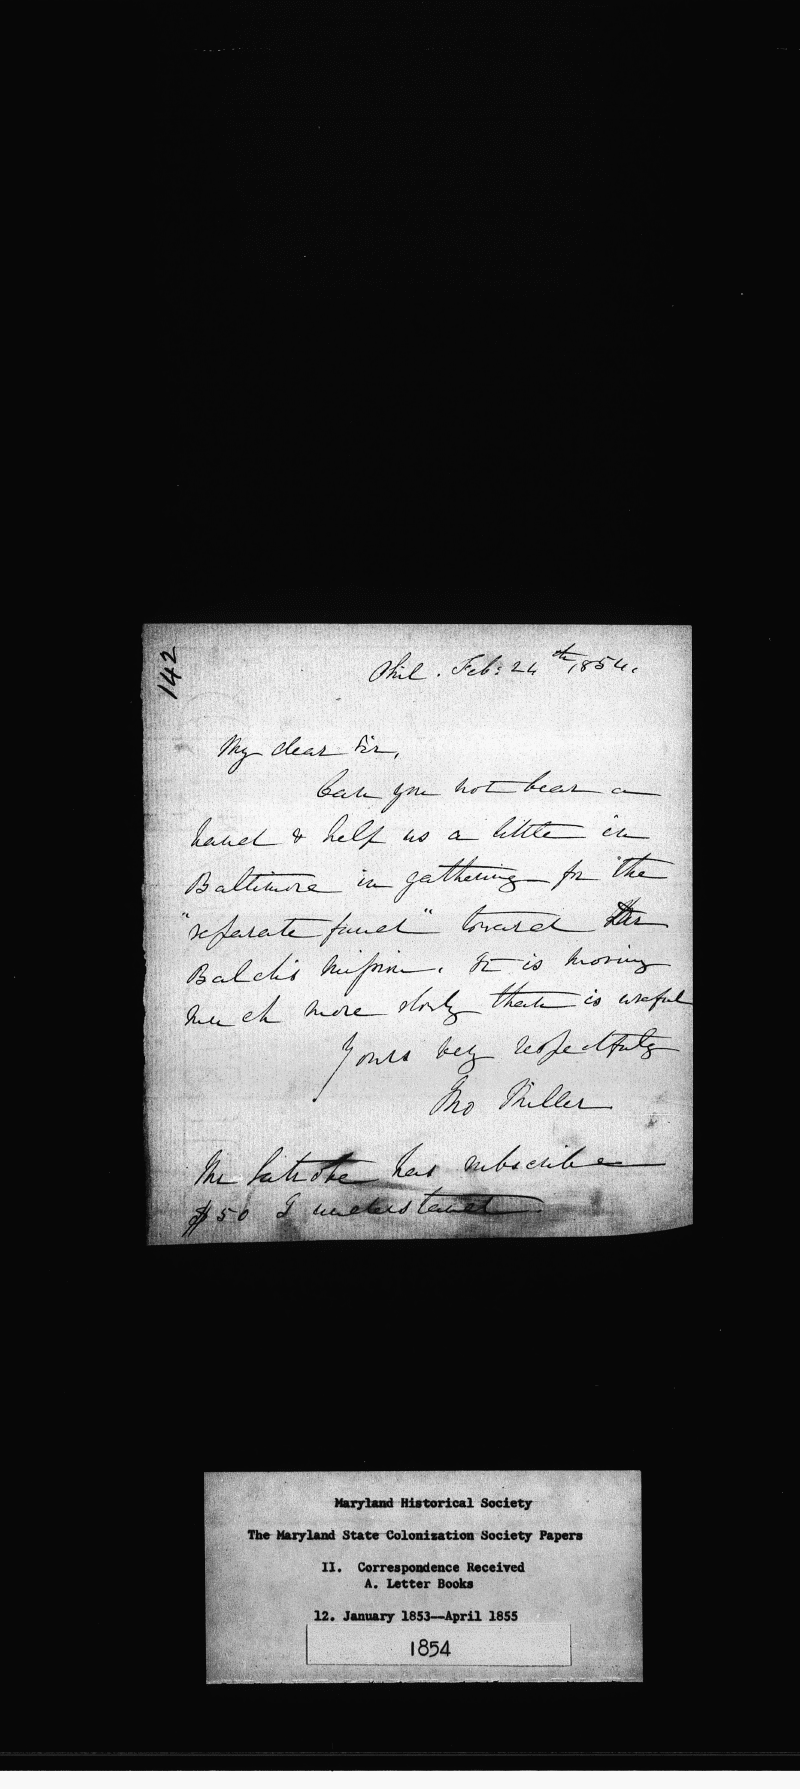 142
Phil. Feb: 24th, 1854.
My dear Sir,
Can you not bear a
hand & help us a little in
Baltimore in gathering for the
"separate fund" toward
Balch's Mission. It is moving
much more slowly than is useful
Yours very respectfully
Jno Miller
Mr Latrobe has subscribed
$50 I understand.
Maryland Historical Society
The Maryland State Colonization Society Papers
II. Correspondence Received
A. Letter Books
12. January 1853--April 1855
1854